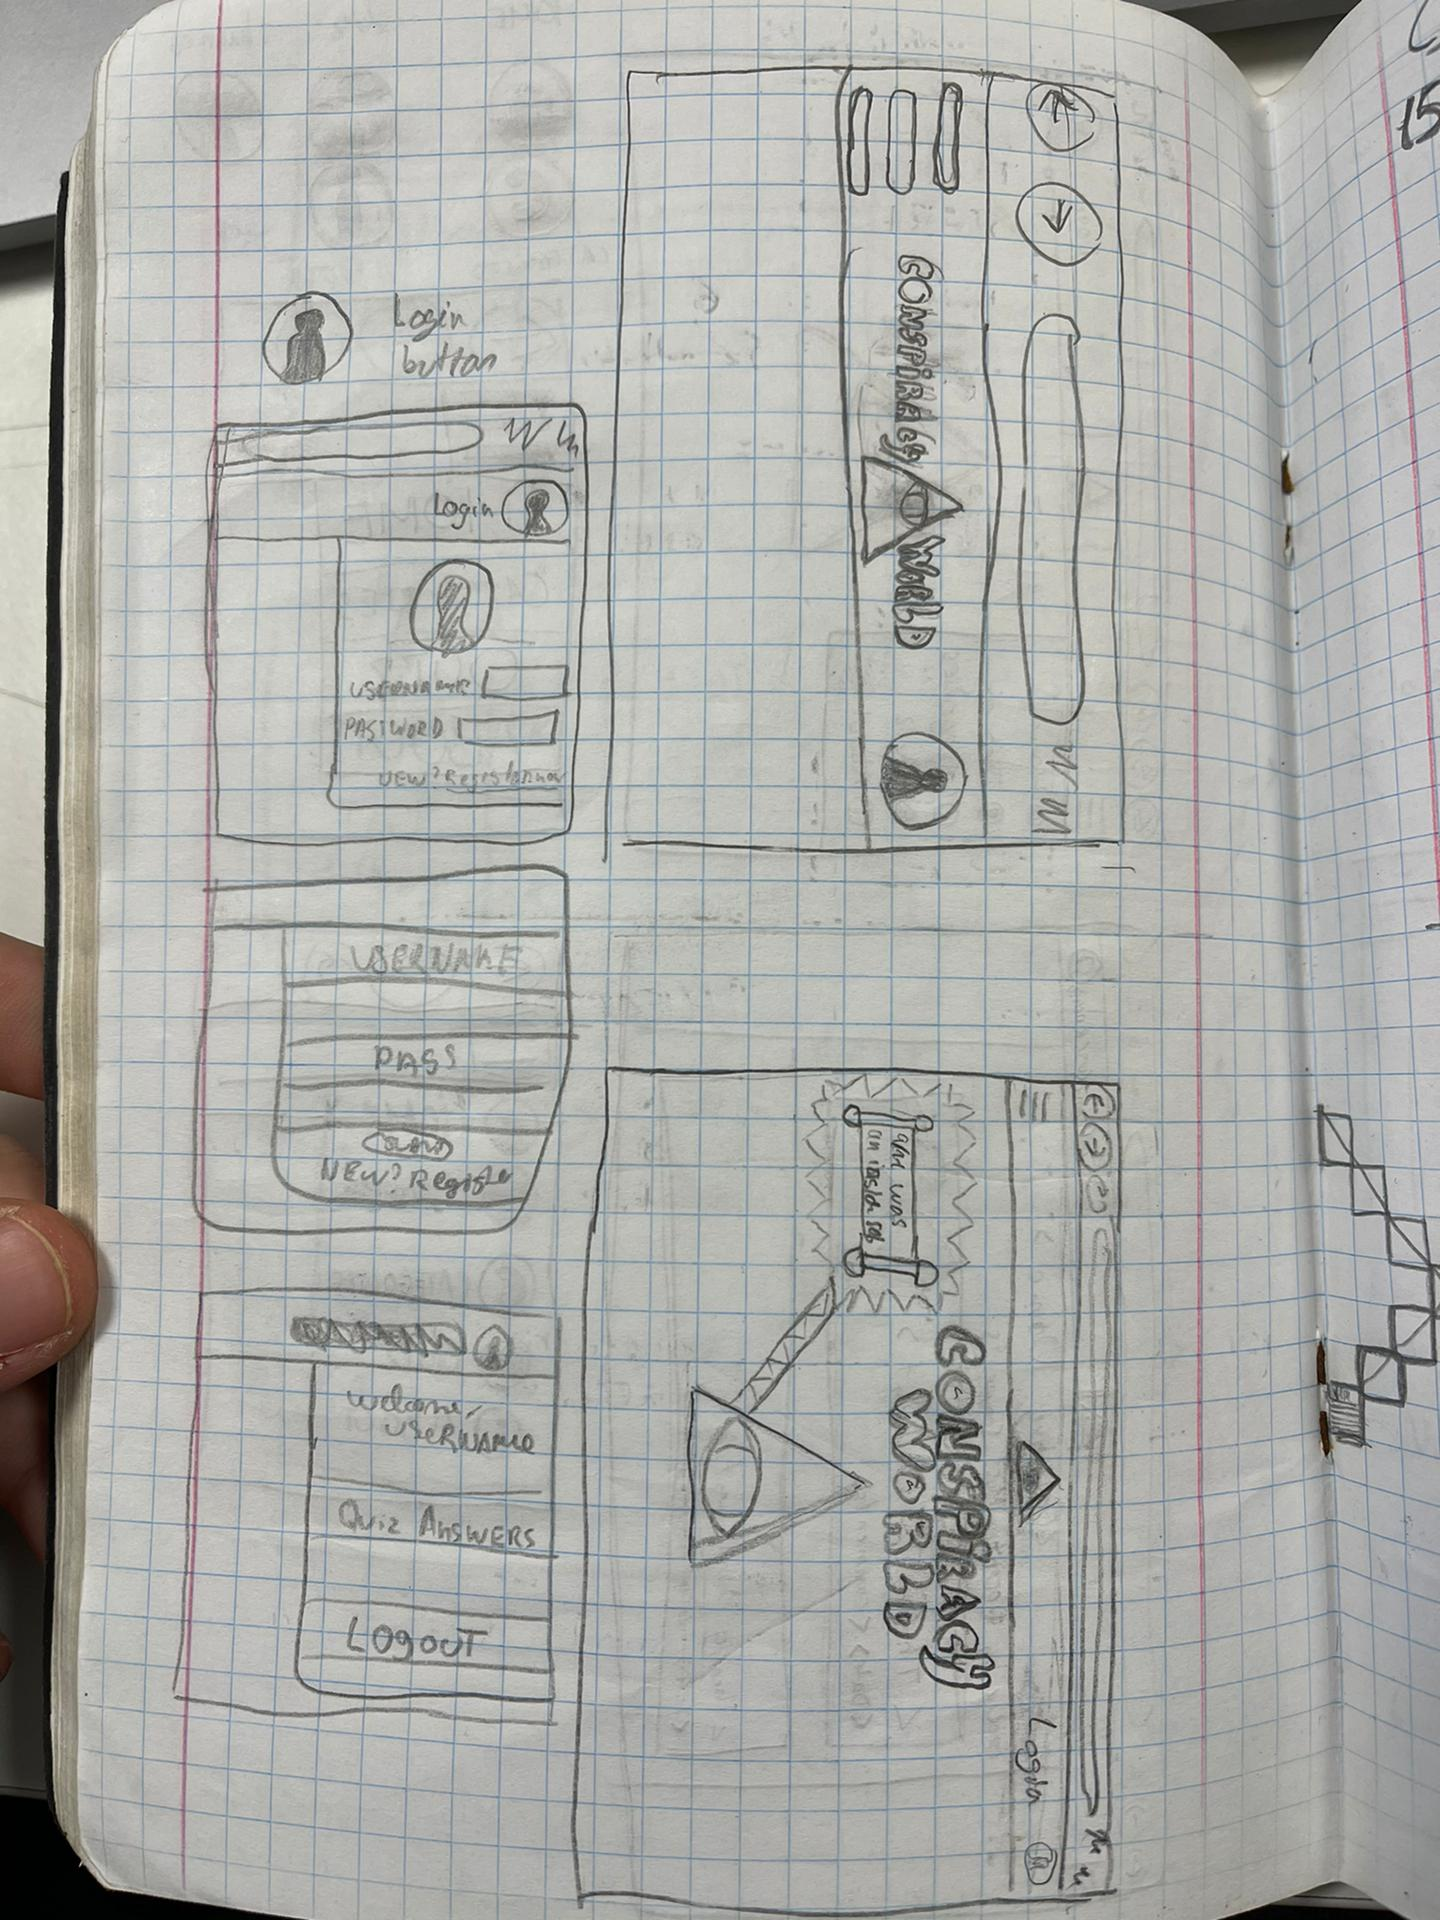 Login
button
Login
USERNAME
PASSWORD
NEW? Register now
USERNAME
PASS
NEW? Register
Welcome,
USERNAME
Quiz ANSWERS
LOGOUT
CONSPIRACY WORLD
CONSPIRACY
WORLD
Login
15